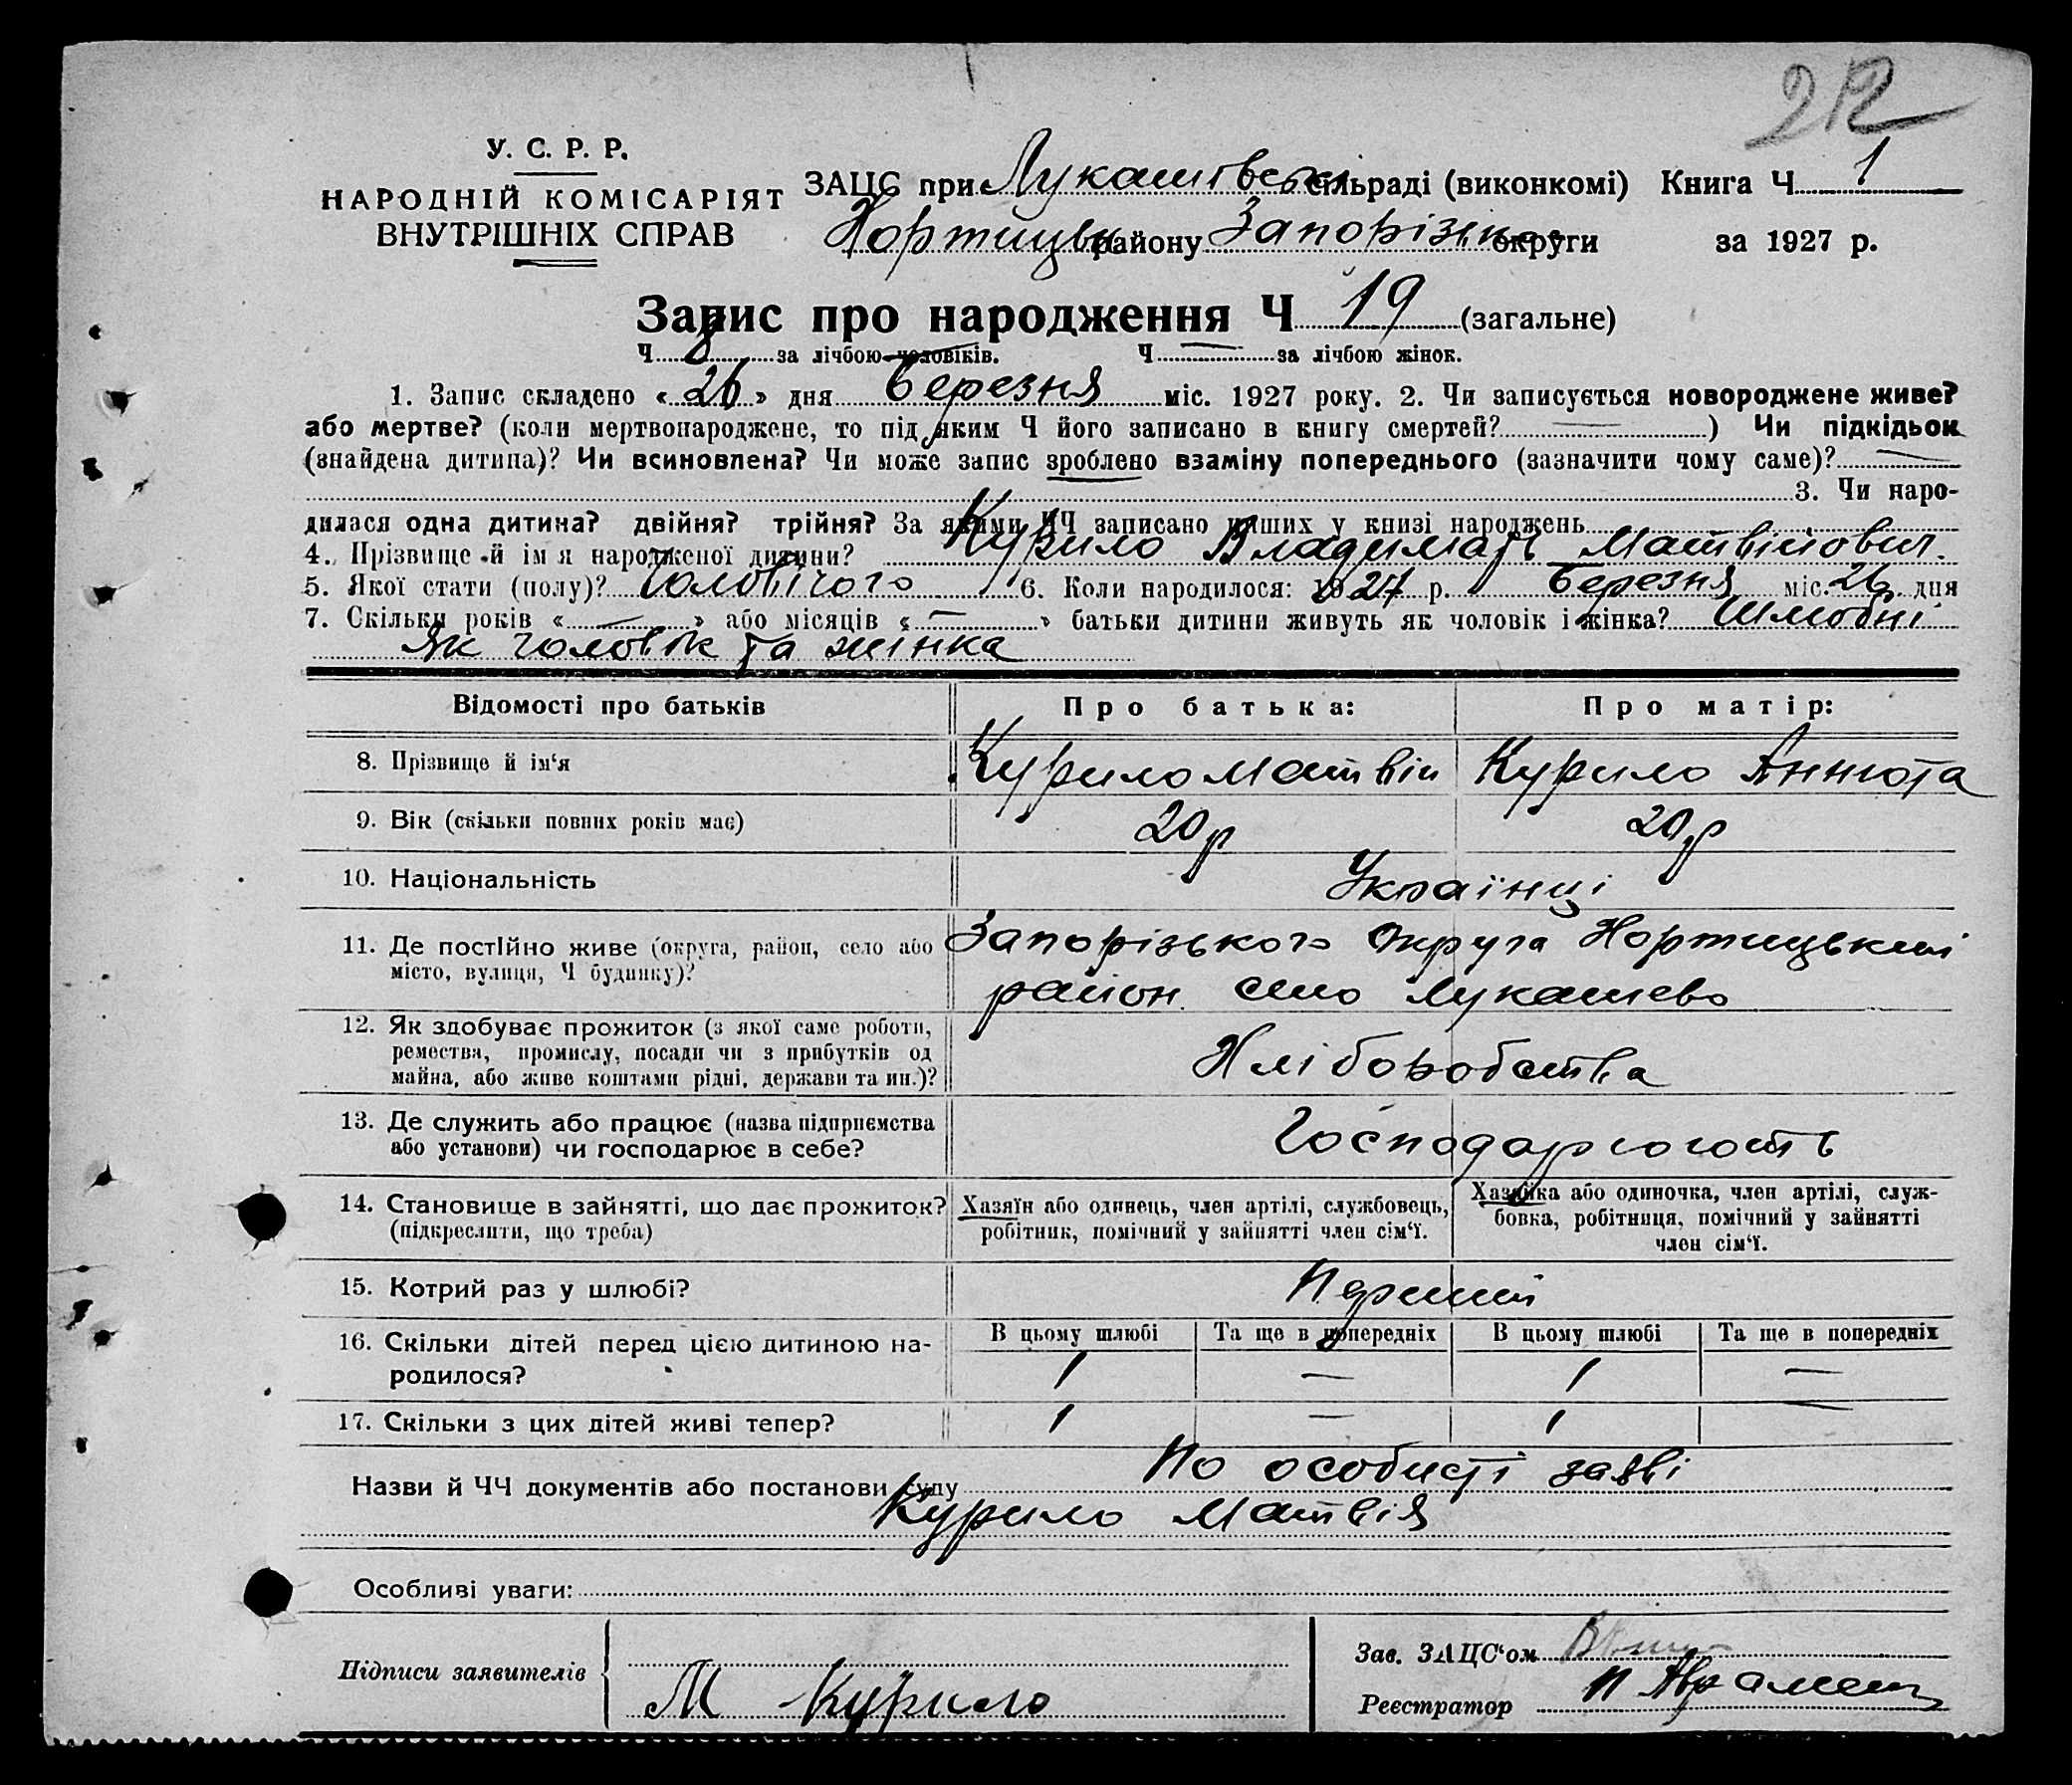 212
У. С. Р. Р.
НАРОДНІЙ КОМІСАРІЯТ
ВНУТРІШНІХ СПРАВ
ЗАЦС при Лукашівськ сільраді (виконкомі) Книга Ч 1
Хортицьк району Запорізько округи за 1927 р.
Запис про народження Ч 19 (загальне)
Ч 8 за лічбою чоловіків. Ч — за лічбою жінок.
1. Запис складено «26» дня Березня міс. 1927 року. 2. Чи записується новороджене живе?
або мертве? (коли мертвонароджене, то під яким Ч його записано в книгу смертей? — ) Чи підкідьок
(знайдена дитина)? Чи всиновлена? Чи може запис зроблено взаміну попереднього (зазначити чому саме)? —
3. Чи наро-
дилася одна дитина? двійня? трійня? За якими ЧЧ записано інших у книзі народжень
4. Прізвище й ім я народженої дитини? Курило Владимарь Матвійович.
5. Якої стати (полу)? Чоловічого 6. Коли народилося: 1927 р. Березня міс. 26 дня
7. Скільки років « — » або місяців « — » батьки дитини живуть як чоловік і жінка? Шлюбні
Як чоловік та жінка
Відомості про батьків Про батька: Про матір:
8. Прізвище й ім‘я Курило Матвій Курило Аннюта
9. Вік (скільки повних років має) 20 р 20 р
10. Національність Українці
11. Де постІйно живе (округа, район, село або Запорізького Округа Хортицький
місто, вулиця, Ч будинку)? район село Лукашево
12. Як здобуває прожиток (з якої саме роботи,
ремества, промислу, посади чи з прибутків од Хліборобства
майна, або живе коштами рідні, держави та ин.)?
13. Де служить або працює (назва підприємства Господарюють
або установи) чи господарює в себе?
14. Становище в зайнятті, що дає прожиток? Хазяїн або одинець, член артілі, службовець, Хазяйка або одиночка, член артілі, служ-
(підкреслити, що треба) робітник, помічний у зайнятті член сім‘ї. бовка, робітниця, помічний у зайнятті
член сім‘ї.
15. Котрий раз у шлюбі? Перший
16. Скільки дітей перед цією дитиною на- В цьому шлюбі Та ще в попередніх В цьому шлюбі Та ще в попередніх
родилося? 1 — 1 —
17. Скільки з цих дітей живі тепер? 1 — 1 —
По особисті заяві
Назви й ЧЧ документів або постанови суду
Курило Матвія
Особливі уваги:
Зав. ЗАЦС‘ом
Підписи заявителів
М Курило
Реєстратор